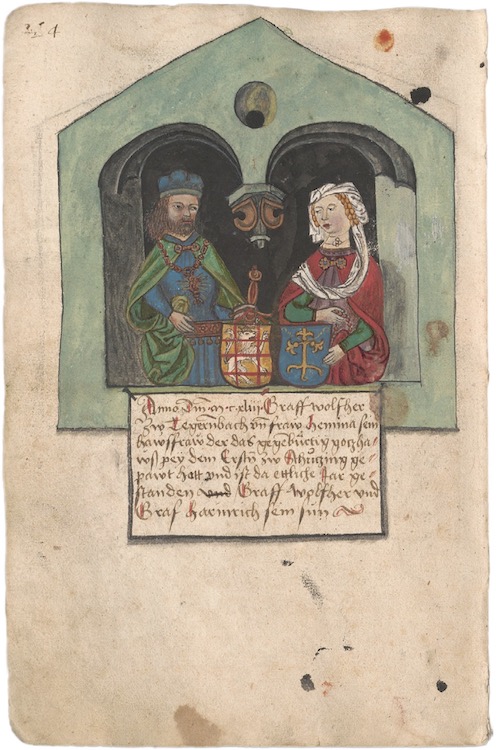 Anno Dm̄ · m · c · xliii · Graff wolfher
zw Tegrnbach vn̄ fraw hemma sein
hawsfraw der das gegebürtig gotzha⸗
ws pey dem Erstn zw Schützing ge⸗
pawt hatt vnd ist da ettliche Jar ge⸗
standen vnd Graff wolfher vnd
Graf hainrich sein sun